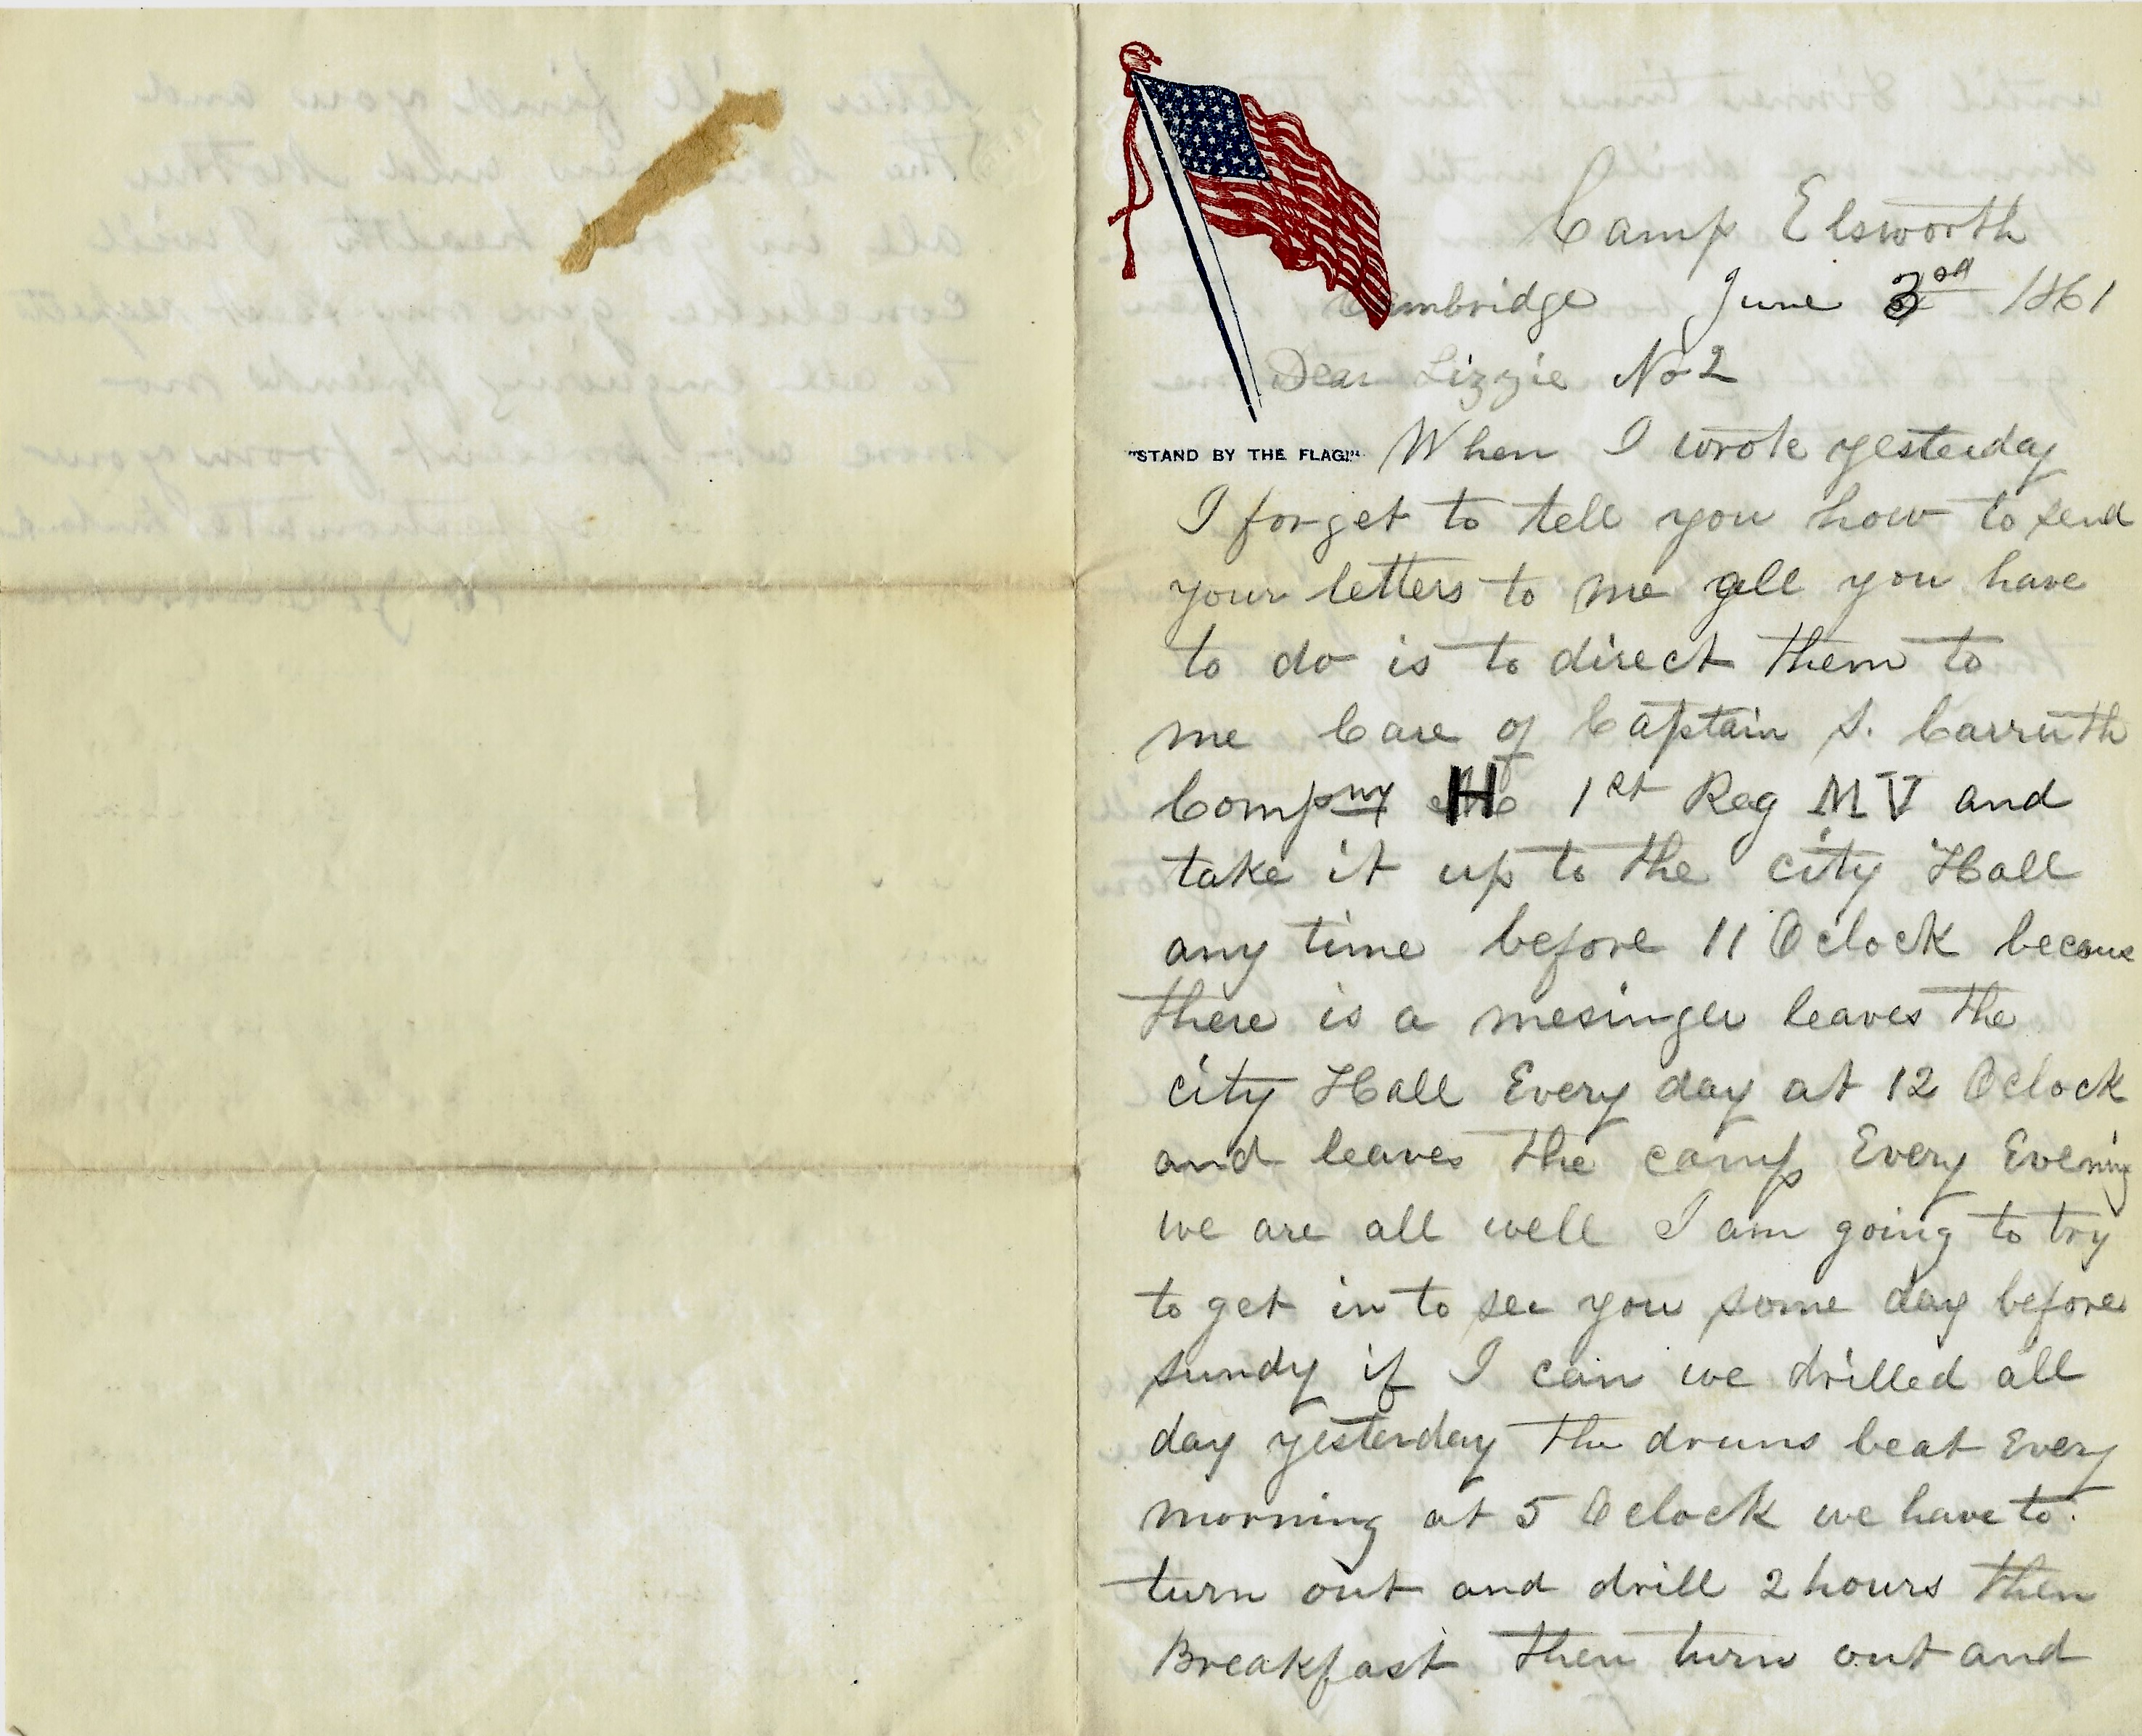 Camp Elsworth
Cambridge June 3rd 1861
Dear Lizzie No 2
"STAND BY THE FLAG!"
When I wrote yesterday
I forget to tell you how to send
your letters to me all you have
to do is to direct them to
me Care of Captain S. Carruth
Compny H 1st Reg M V and
take it up to the city Hall
any time before 11 Oclock becaus
there is a mesinger leaves the
city Hall Every day at 12 Oclock
and leaves the camp Every Evening
we are all well I am going to try
to get in to see you some day before
sundy if I can we drilled all
day yesterday the drums beat Every
morning at 5 Oclock we have to
turn out and drill 2 hours then
Breakfast then turn out and